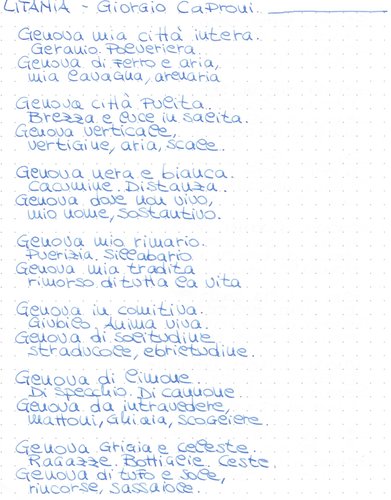 LITANIA - Giorgio Caproni.
Genova mia città intera.
Geranio. Polveriera.
Genova di ferro e aria,
mia lavagna, arenaria
Genova città pulita.
Brezza e luce in salita.
Genova verticale,
vertigine, aria, scale.
Genova nera e bianca.
Cacumine. Distanza.
Genova dove non vivo,
mio nome, sostantivo.
Genova mio rimario.
Puerizia. Sillabario
Genova mia tradita
rimorso di tutta la vita
Genova in comitiva.
Giubilo. Anima viva.
Genova di solitudine
straducole, ebrietudine.
Genova di limone.
Di specchio. Di cannone.
Genova da intravedere,
mattoni, ghiaia, scogliere.
Genova Grigia e celeste.
Ragazze. Bottiglie. Ceste.
Genova di tufo e sole,
rincorse, sassaiole.